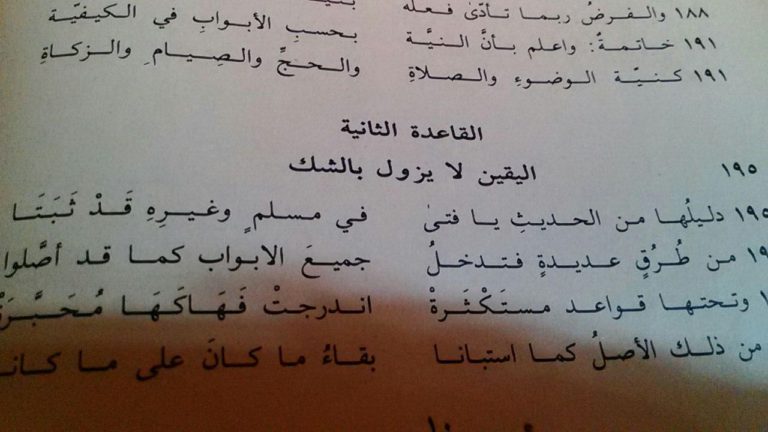 ١٨٨ والفرضُ ربما تأدّى فعله
١٩١ خاتمةٌ: واعلم بأنَّ النيَّة بحسبِ الأبوابِ في الكيفيَّة
١٩١ كنيّة الوضوءِ والصلاةِ والحجِّ والصِيامِ والزكاةِ
القاعدة الثانية
١٩٥ اليقين لا يزول بالشك
دليلُها من الحديثِ يا فتىٰ في مسلمٍ وغيرِهِ قَدْ ثَبَتَا
من طُرُقٍ عديدةٍ فتدخلُ جميعَ الابواب كما قد أصَّلوا
وتحتها قواعد مستَكْثَرةْ اندرجتْ فَهَاكَهَا مُحَبَّرَةْ
من ذلك الأصلُ كما استبانا بقاءُ ما كانَ على ما كانا